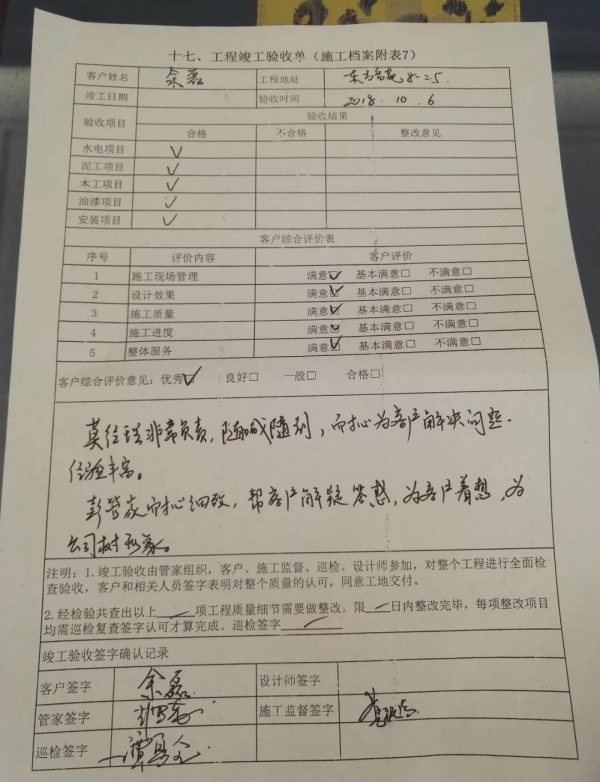 十七、工程竣工验收单（施工档案附表7）
客户姓名 余磊 工程地址 8-2.5.
竣工日期 验收时间 2018.10.6
验收项目 验收结果
合格 不合格 整改意见
水电项目 ✓
泥工项目 ✓
木工项目 ✓
油漆项目 ✓
安装项目 ✓
客户综合评价表
序号 评价内容 客户评价
1 施工现场管理 满意☑ 基本满意□ 不满意□
2 设计效果 满意☑ 基本满意□ 不满意□
3 施工质量 满意☑ 基本满意□ 不满意□
4 施工进度 满意☑ 基本满意□ 不满意□
5 整体服务 满意☑ 基本满意□ 不满意□
客户综合评价意见：优秀☑ 良好□ 一般□ 合格□
莫经理非常负责，随喊随到，耐心为客户解决问题.
经验丰富。
彭管家耐心细致，帮客户解疑答惑，为客户着想，为
公司树形象。
注明：1.竣工验收由管家组织，客户、施工监督、巡检、设计师参加，对整个工程进行全面检
查验收，客户和相关人员签字表明对整个质量的认可，同意工地交付。
2.经检验共查出以上 项工程质量细节需要做整改，限 日内整改完毕，每项整改项目
均需巡检复查签字认可才算完成，巡检签字
竣工验收签字确认记录
客户签字 余磊 设计师签字
管家签字 施工监督签字
巡检签字